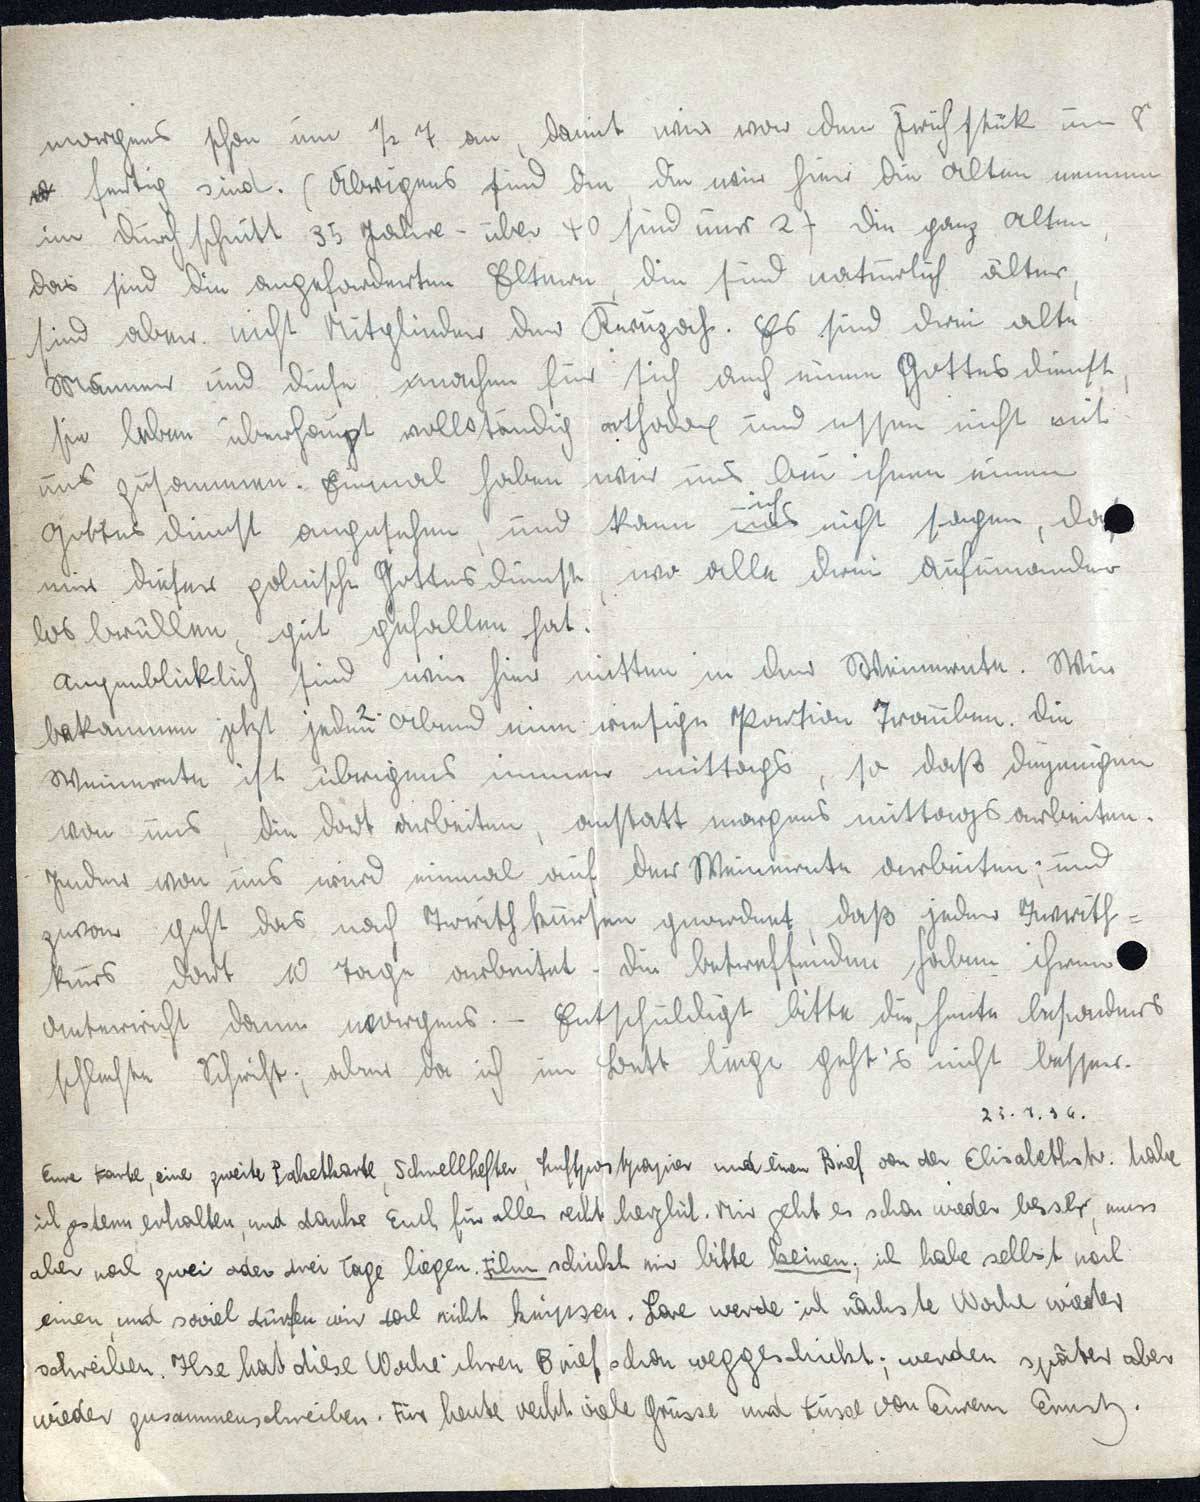 morgens schon um 1/2 7 an, damit wir vor dem Frühstük um 8
fertig sind. (Übrigens sind die, die wir hier die Alten nennen
im Durchschnitt 35 Jahre - über 40 sind nur 2) Die ganz Alten,
das sind die angeforderten Eltern, die sind natürlich älter,
sind aber nicht Mitglieder der Kwuzah. Es sind drei alte
Männer und diese machen für sich auch einen Gottesdienst,
sie leben überhaupt vollständig orthodox und essen nicht mit
uns zusammen. Einmal haben wir uns bei ihnen einen
Gottesdienst angesehen, und kann ich nicht sagen, daß
mir dieser polnische Gottesdienst, wo alle drei aufeinander
los brüllen, gut gefallen hat.
Augenblicklich sind wir hier mitten in der Weinernte. Wir
bekommen jetzt jeden 2. Abend eine riesige Portion Trauben. Die
Weinernte ist übrigens immer mittags, so daß diejenigen
von uns, die dort arbeiten, anstatt morgens mittags arbeiten.
Jeder von uns wird einmal auf der Weinernte arbeiten; und
zwar geht das nach Iwrithkursen geordnet, daß jeder Iwrith-
kurs dort 10 Tage arbeitet. Die betreffenden haben ihren
Unterricht dann morgens. - Entschuldigt bitte die, heute besonders
schlechte Schrift; aber da ich im Bett liege geht's nicht besser.
Eure Karte, eine zweite Paketkarte, Schnellhefter, Luftpostpapier und einen Brief von der Elisabethstr. habe
ich gestern erhalten, und danke Euch für alles recht herzlich. Mir geht es schon wieder besser, muss
aber noch zwei oder drei Tage liegen. Film schickt mir bitte keinen; ich habe selbst noch
einen, und soviel dürfen wir doch nicht knipsen. Lore werde ich nächste Woche wieder
schreiben. Ilse hat diese Woche ihren Brief schon weggeschickt; werden später aber
wieder zusammenschreiben. Für heute recht viele Grüsse und Küsse von Eurem Ernst.